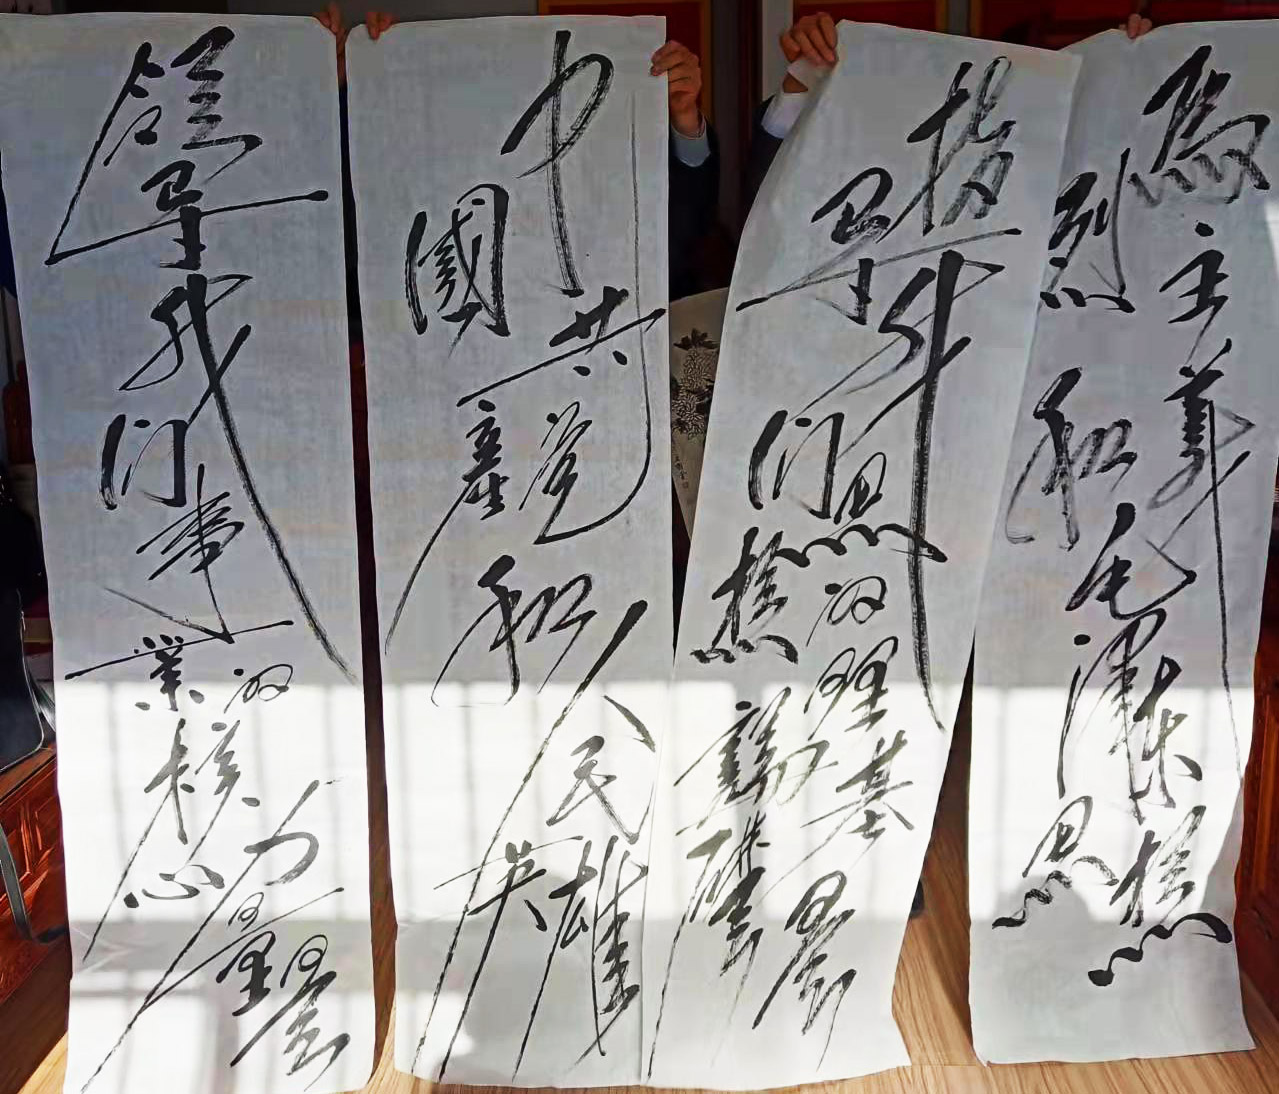 領导我们事業的核心力量是
中國共產党和人民英雄
指导我们思想的理論基礎是
馬烈主義和毛澤东思想